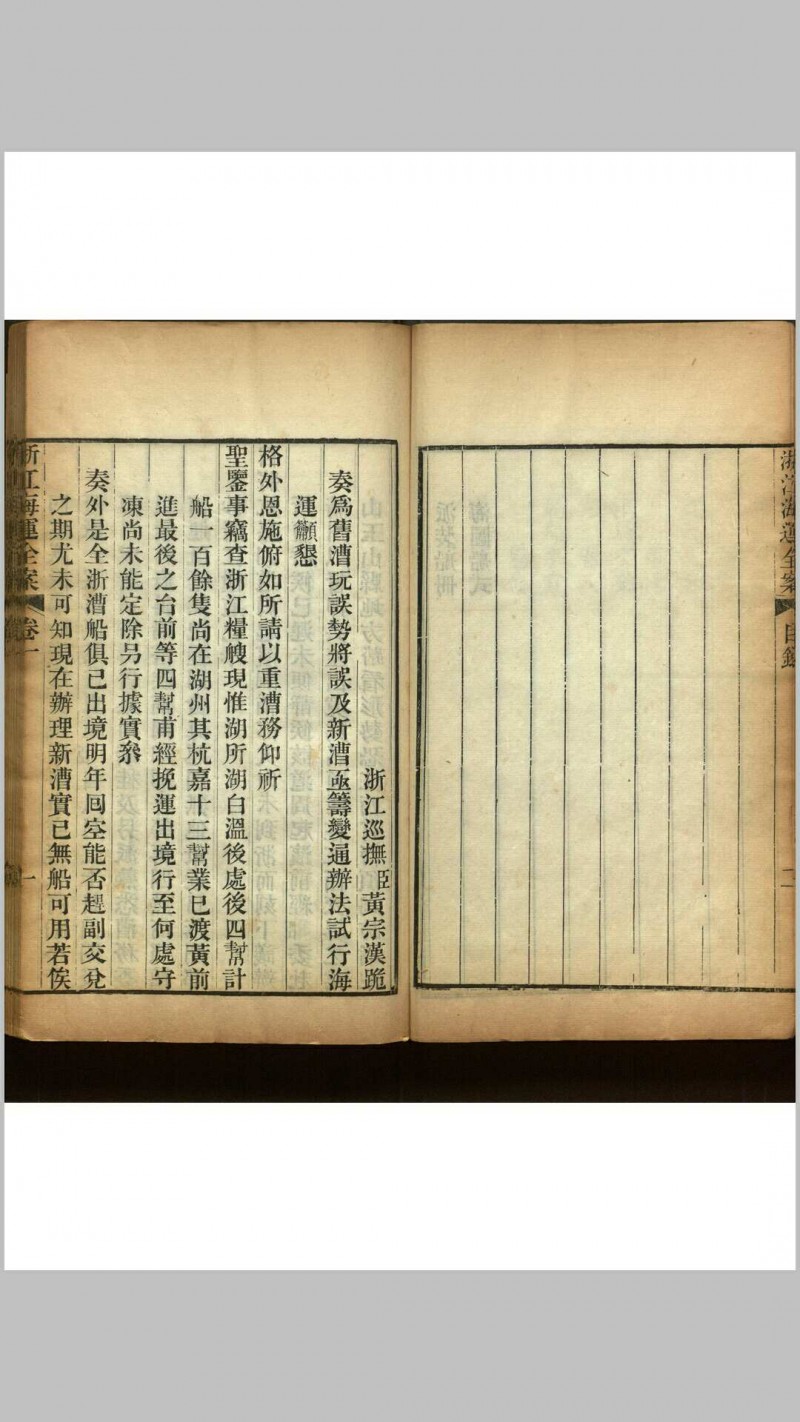 浙江海運全案
目錄
浙江巡撫臣黃宗漢跪
奏爲舊漕玩誤勢將誤及新漕亟籌變通辦法試行海
運籲懇
格外恩施俯如所請以重漕務仰祈
聖鑒事竊查浙江糧艘現惟湖所湖白溫後處後四幫計
船一百餘隻尚在湖州其杭嘉十三幫業已渡黃前
進最後之台前等四幫甫經挽運出境行至何處守
凍尚未能定除另行據實叅
奏外是全浙漕船俱已出境明年囘空能否趕副交兌
之期尤未可知現在辦理新漕實已無船可用若俟
浙江海運全案
卷一
一